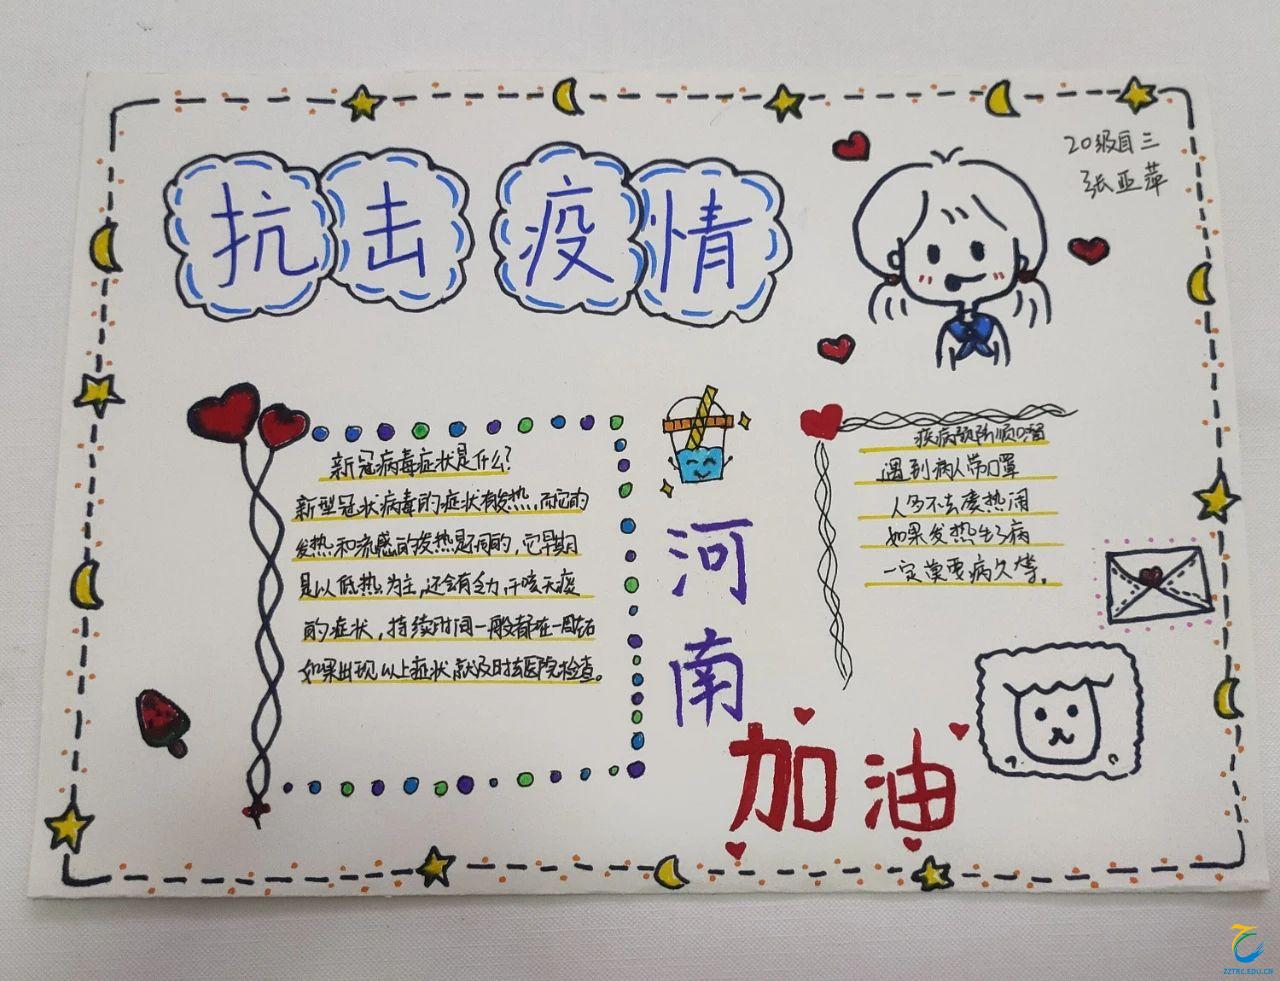 抗击疫情
20级自三
张亚萍
新冠病毒症状是什么?
新型冠状病毒的症状有发热,而它的
发热和流感的发热是不同的,它早期
是以低热为主,还会有乏力,干咳无痰
的症状,持续时间一般都在一周左右
如果出现以上症状就及时去医院检查。
疾病预防顺口溜
遇到病人带口罩
人多不去凑热闹
如果发热生了病
一定莫要病久拷。
河
南
加油
ZZTRC.EDU.CN